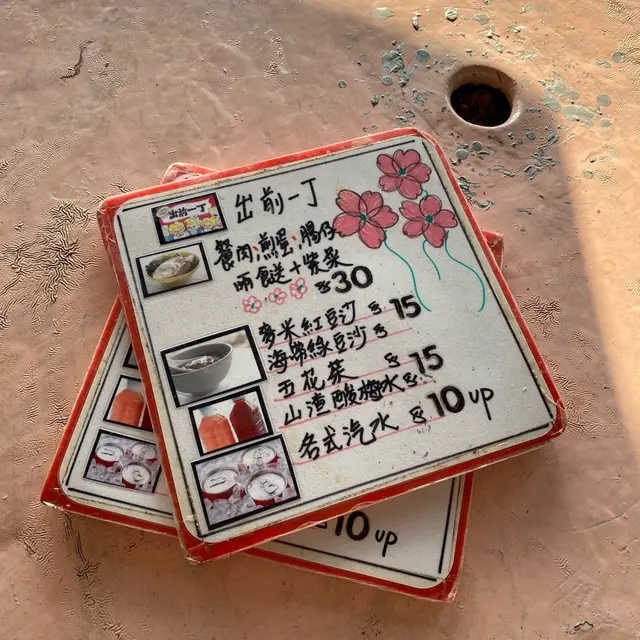 出前一丁
出前一丁
餐肉,煎蛋,腸仔
兩餸+紫菜
$30
麥米紅豆沙 $15
海帶綠豆沙 $
五花茶 $15
山渣酸梅水 $
各式汽水 $10 up
$10 up